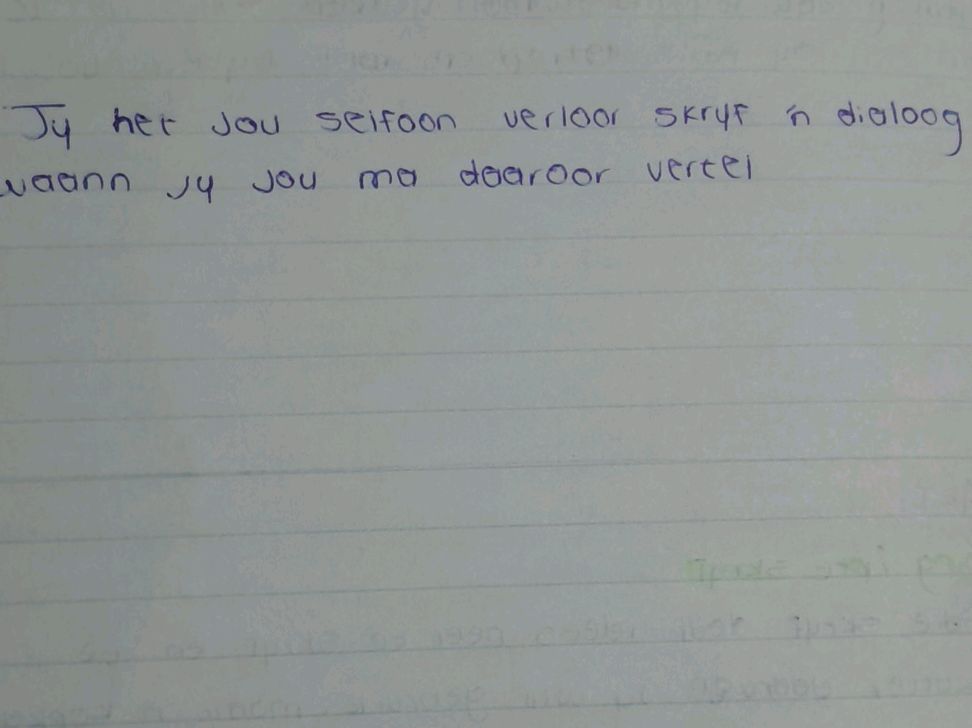 Jy het jou selfoon verloor skryf 'n dialoog
waann jy jou ma daaroor vertel